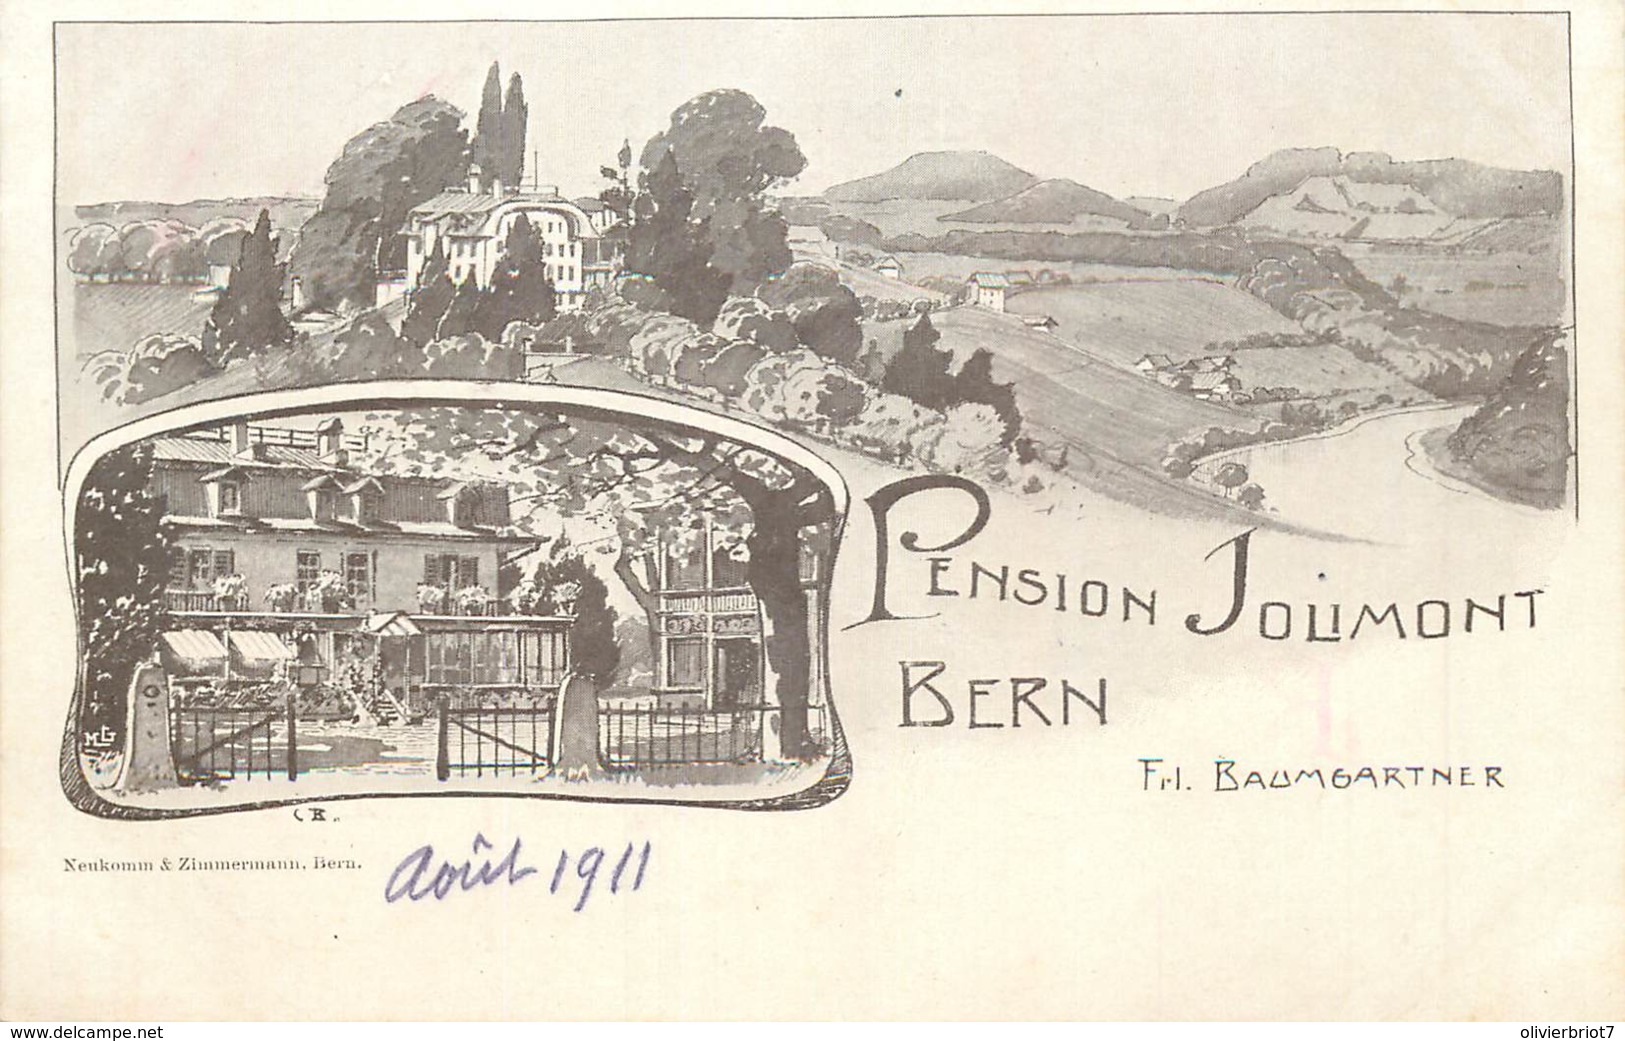 PENSION JOLIMONT
BERN
Frl. BAUMGARTNER
MG
Neukomm & Zimmermann, Bern.
Août 1911
www.delcampe.net
olivierbriot7